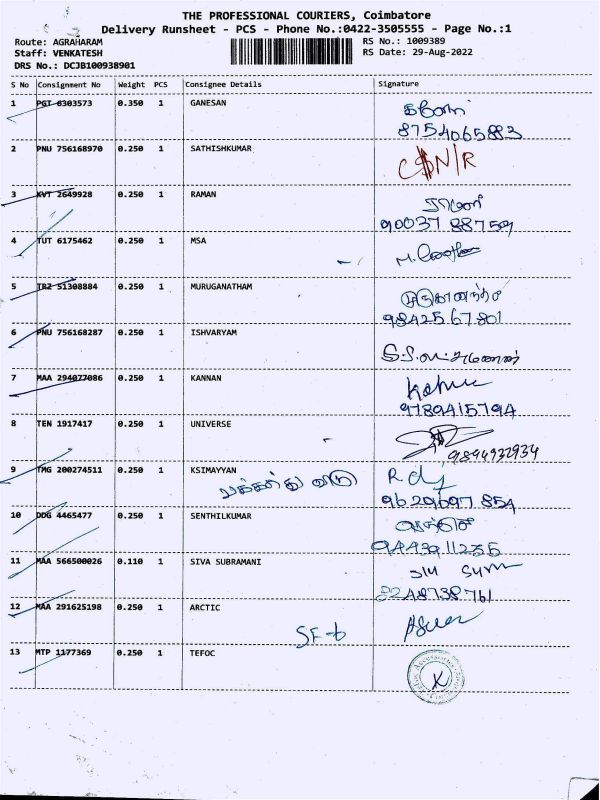 THE PROFESSIONAL COURIERS, Coimbatore
Delivery Runsheet - PCS - Phone No.:0422-3505555 - Page No.:1
Route: AGRAHARAM
RS No.: 1009389
Staff: VENKATESH
RS Date: 29-Aug-2022
DRS No.: DCJB100938901
S No Consignment No Weight PCS Consignee Details Signature
1 PGT 6303573 0.350 1 GANESAN
8754065883
2 PNU 756168970 0.250 1 SATHISHKUMAR
3 KVT 2649928 0.250 1 RAMAN
90037 88759
4 TUT 6175462 0.250 1 MSA
5 TRZ 51308884 0.250 1 MURUGANATHAM
98425 67801
6 PNU 756168287 0.250 1 ISHVARYAM
7 MAA 294077086 0.250 1 KANNAN
9789415794
8 TEN 1917417 0.250 1 UNIVERSE
9894932934
9 TMG 200274511 0.250 1 KSIMAYYAN
9629697 854
10 DDG 4465477 0.250 1 SENTHILKUMAR
11 MAA 566500026 0.110 1 SIVA SUBRAMANI
8248738761
12 MAA 291625198 0.250 1 ARCTIC
13 MTP 1177369 0.250 1 TEFOC
K